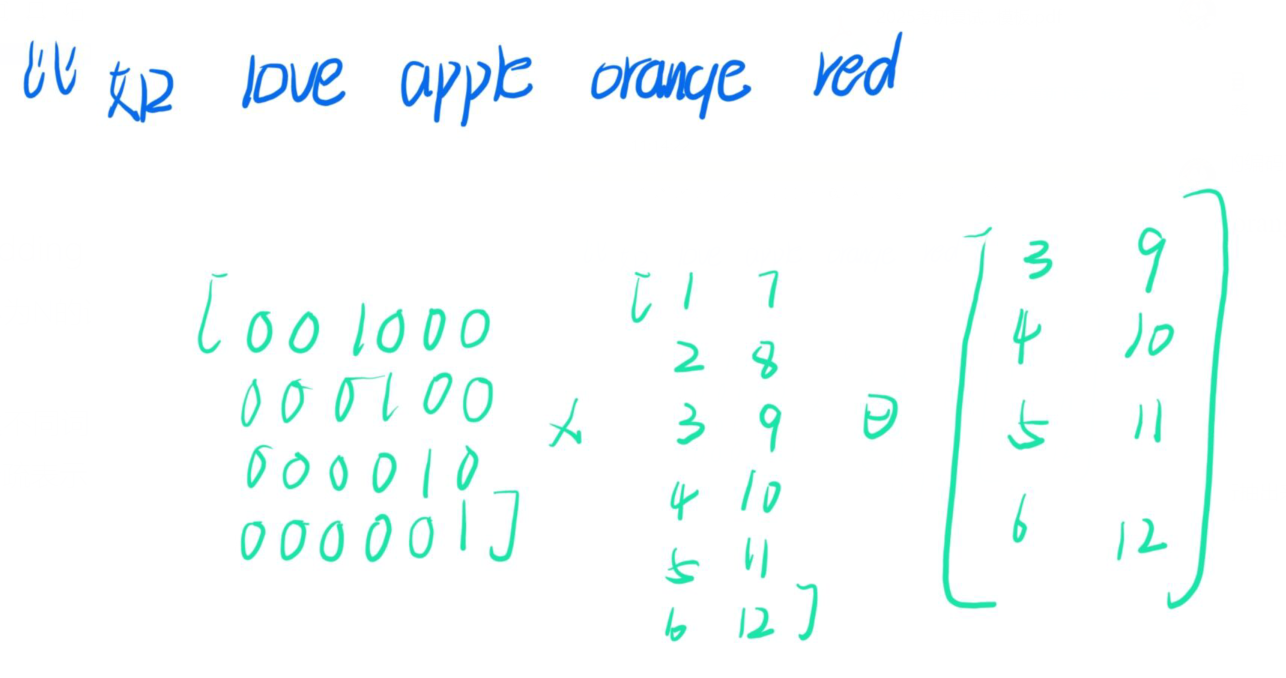 比如 love apple orange red
[ 0 0 1 0 0 0
0 0 0 1 0 0
0 0 0 0 1 0
0 0 0 0 0 1 ]
×
[ 1 7
2 8
3 9
4 10
5 11
6 12 ]
=
[ 3 9
4 10
5 11
6 12 ]